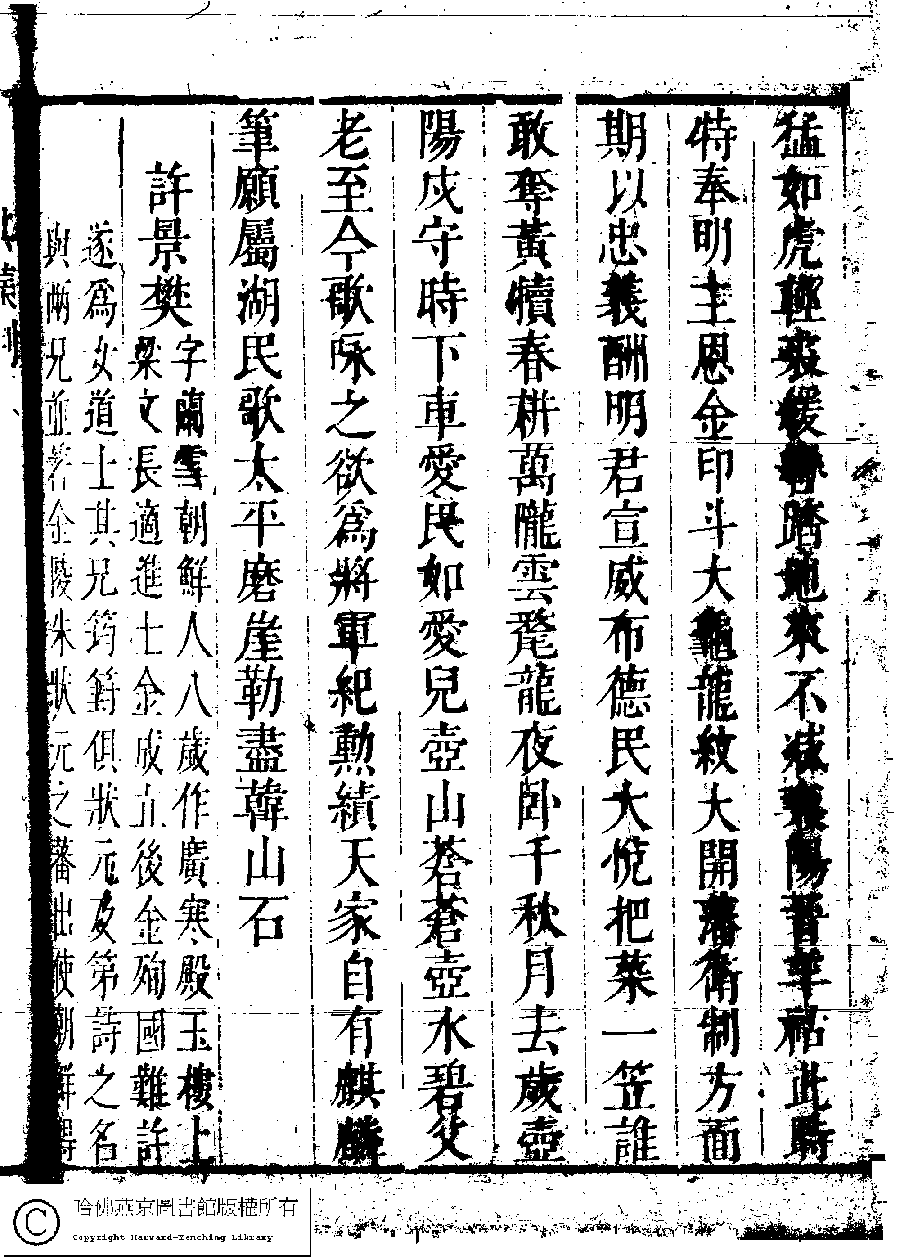 猛如虎輕裘緩帶踏地來不減襄陽晉羊祜此時
特奉明主恩金印斗大龜龍紋大開藩衛制方面
期以忠義酬明君宣威布德民大悅把菜一笠誰
敢奪黃犢春耕萬隴雲尨龍夜卧千秋月去歲壺
陽戍守時下車愛民如愛兒壺山蒼蒼壺水碧父
老至今歌咏之欲為將軍紀勳績天家自有麒麟
筆願屬湖民歌太平磨崖勒盡韓山石
許景樊
字蘭雪朝鮮人八歲作廣寒殿玉樓上
樑文長適進士金成立後金殉國難許
遂為女道士其兄筠篈俱狀元及第詩之名
與兩兄並著金陵朱狀元之蕃出使朝鮮得
哈佛燕京圖書館版權所有
Copyright Harvard-Yenching Library